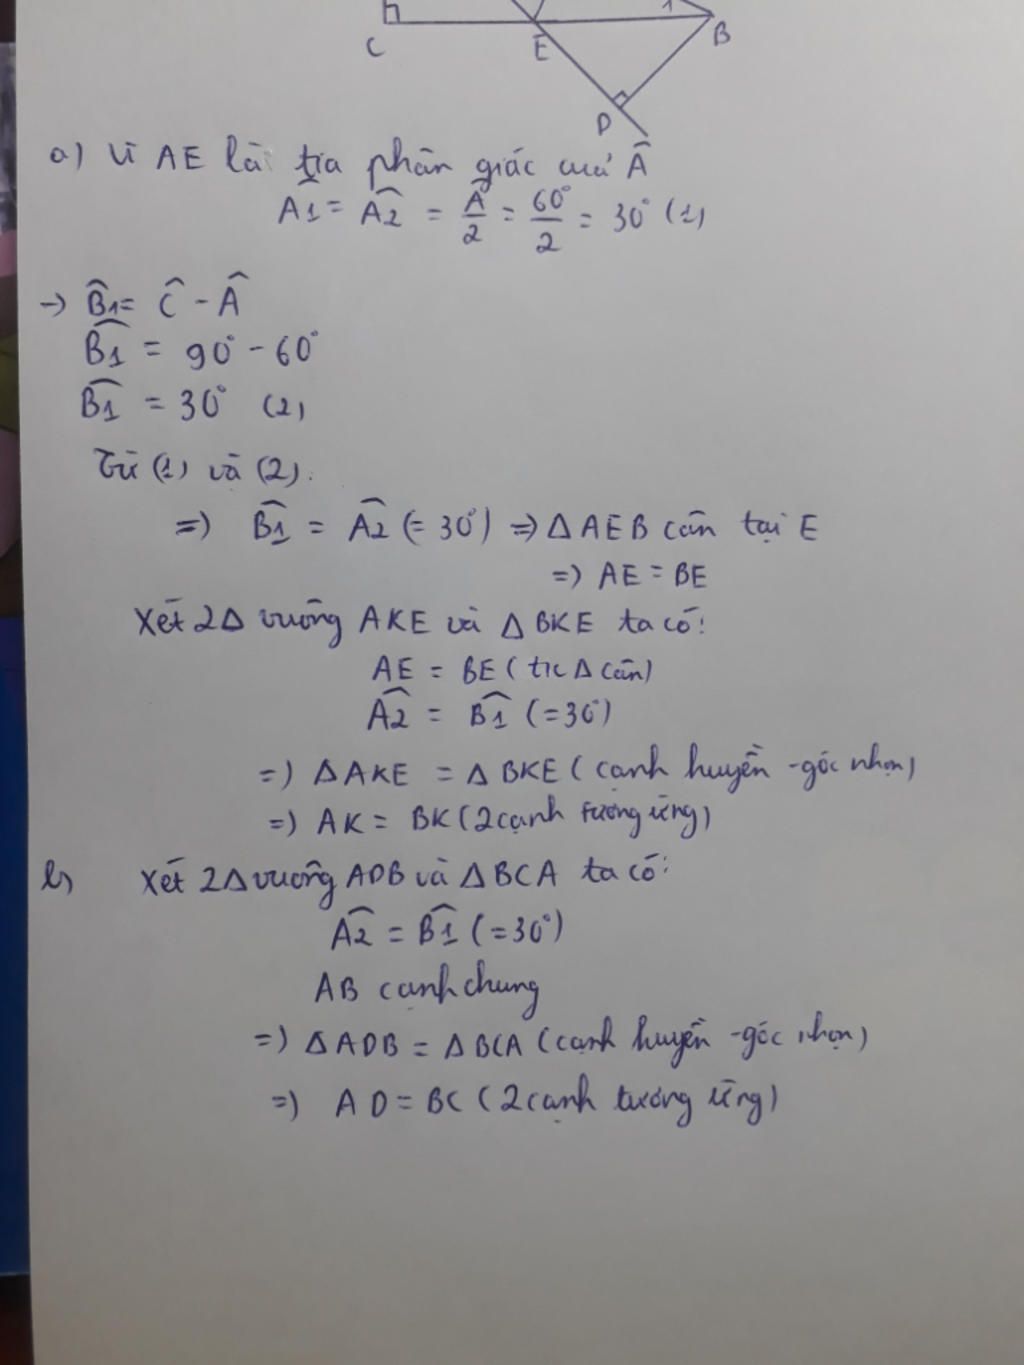 C
E
1
B
D
a) Vì AE là tia phân giác của Â
Â1 = Â2 = Â/2 = 60°/2 = 30° (1)
→ B̂1 = Ĉ - Â
B̂1 = 90° - 60°
B̂1 = 30° (2)
Từ (1) và (2).
=) B̂1 = Â2 (= 30°) => Δ AEB cân tại E
=) AE = BE
Xét 2Δ vuông AKE và Δ BKE ta có:
AE = BE ( t/c Δ cân)
Â2 = B̂1 (=30°)
=) Δ AKE = Δ BKE ( cạnh huyền - góc nhọn)
=) AK = BK (2 cạnh tương ứng)
b) Xét 2Δ vuông ADB và Δ BCA ta có:
Â2 = B̂1 (=30°)
AB cạnh chung
=) Δ ADB = Δ BCA (cạnh huyền - góc nhọn)
=) AD = BC ( 2 cạnh tương ứng)